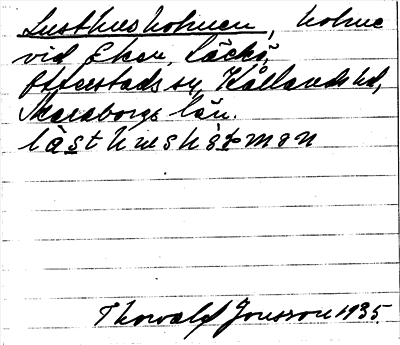 Lusthusholmen, holme
vid Eken, Läckö,
Otterstads sn, Kållands hd,
Skaraborgs län.
Thorvald Jonsson 1935.